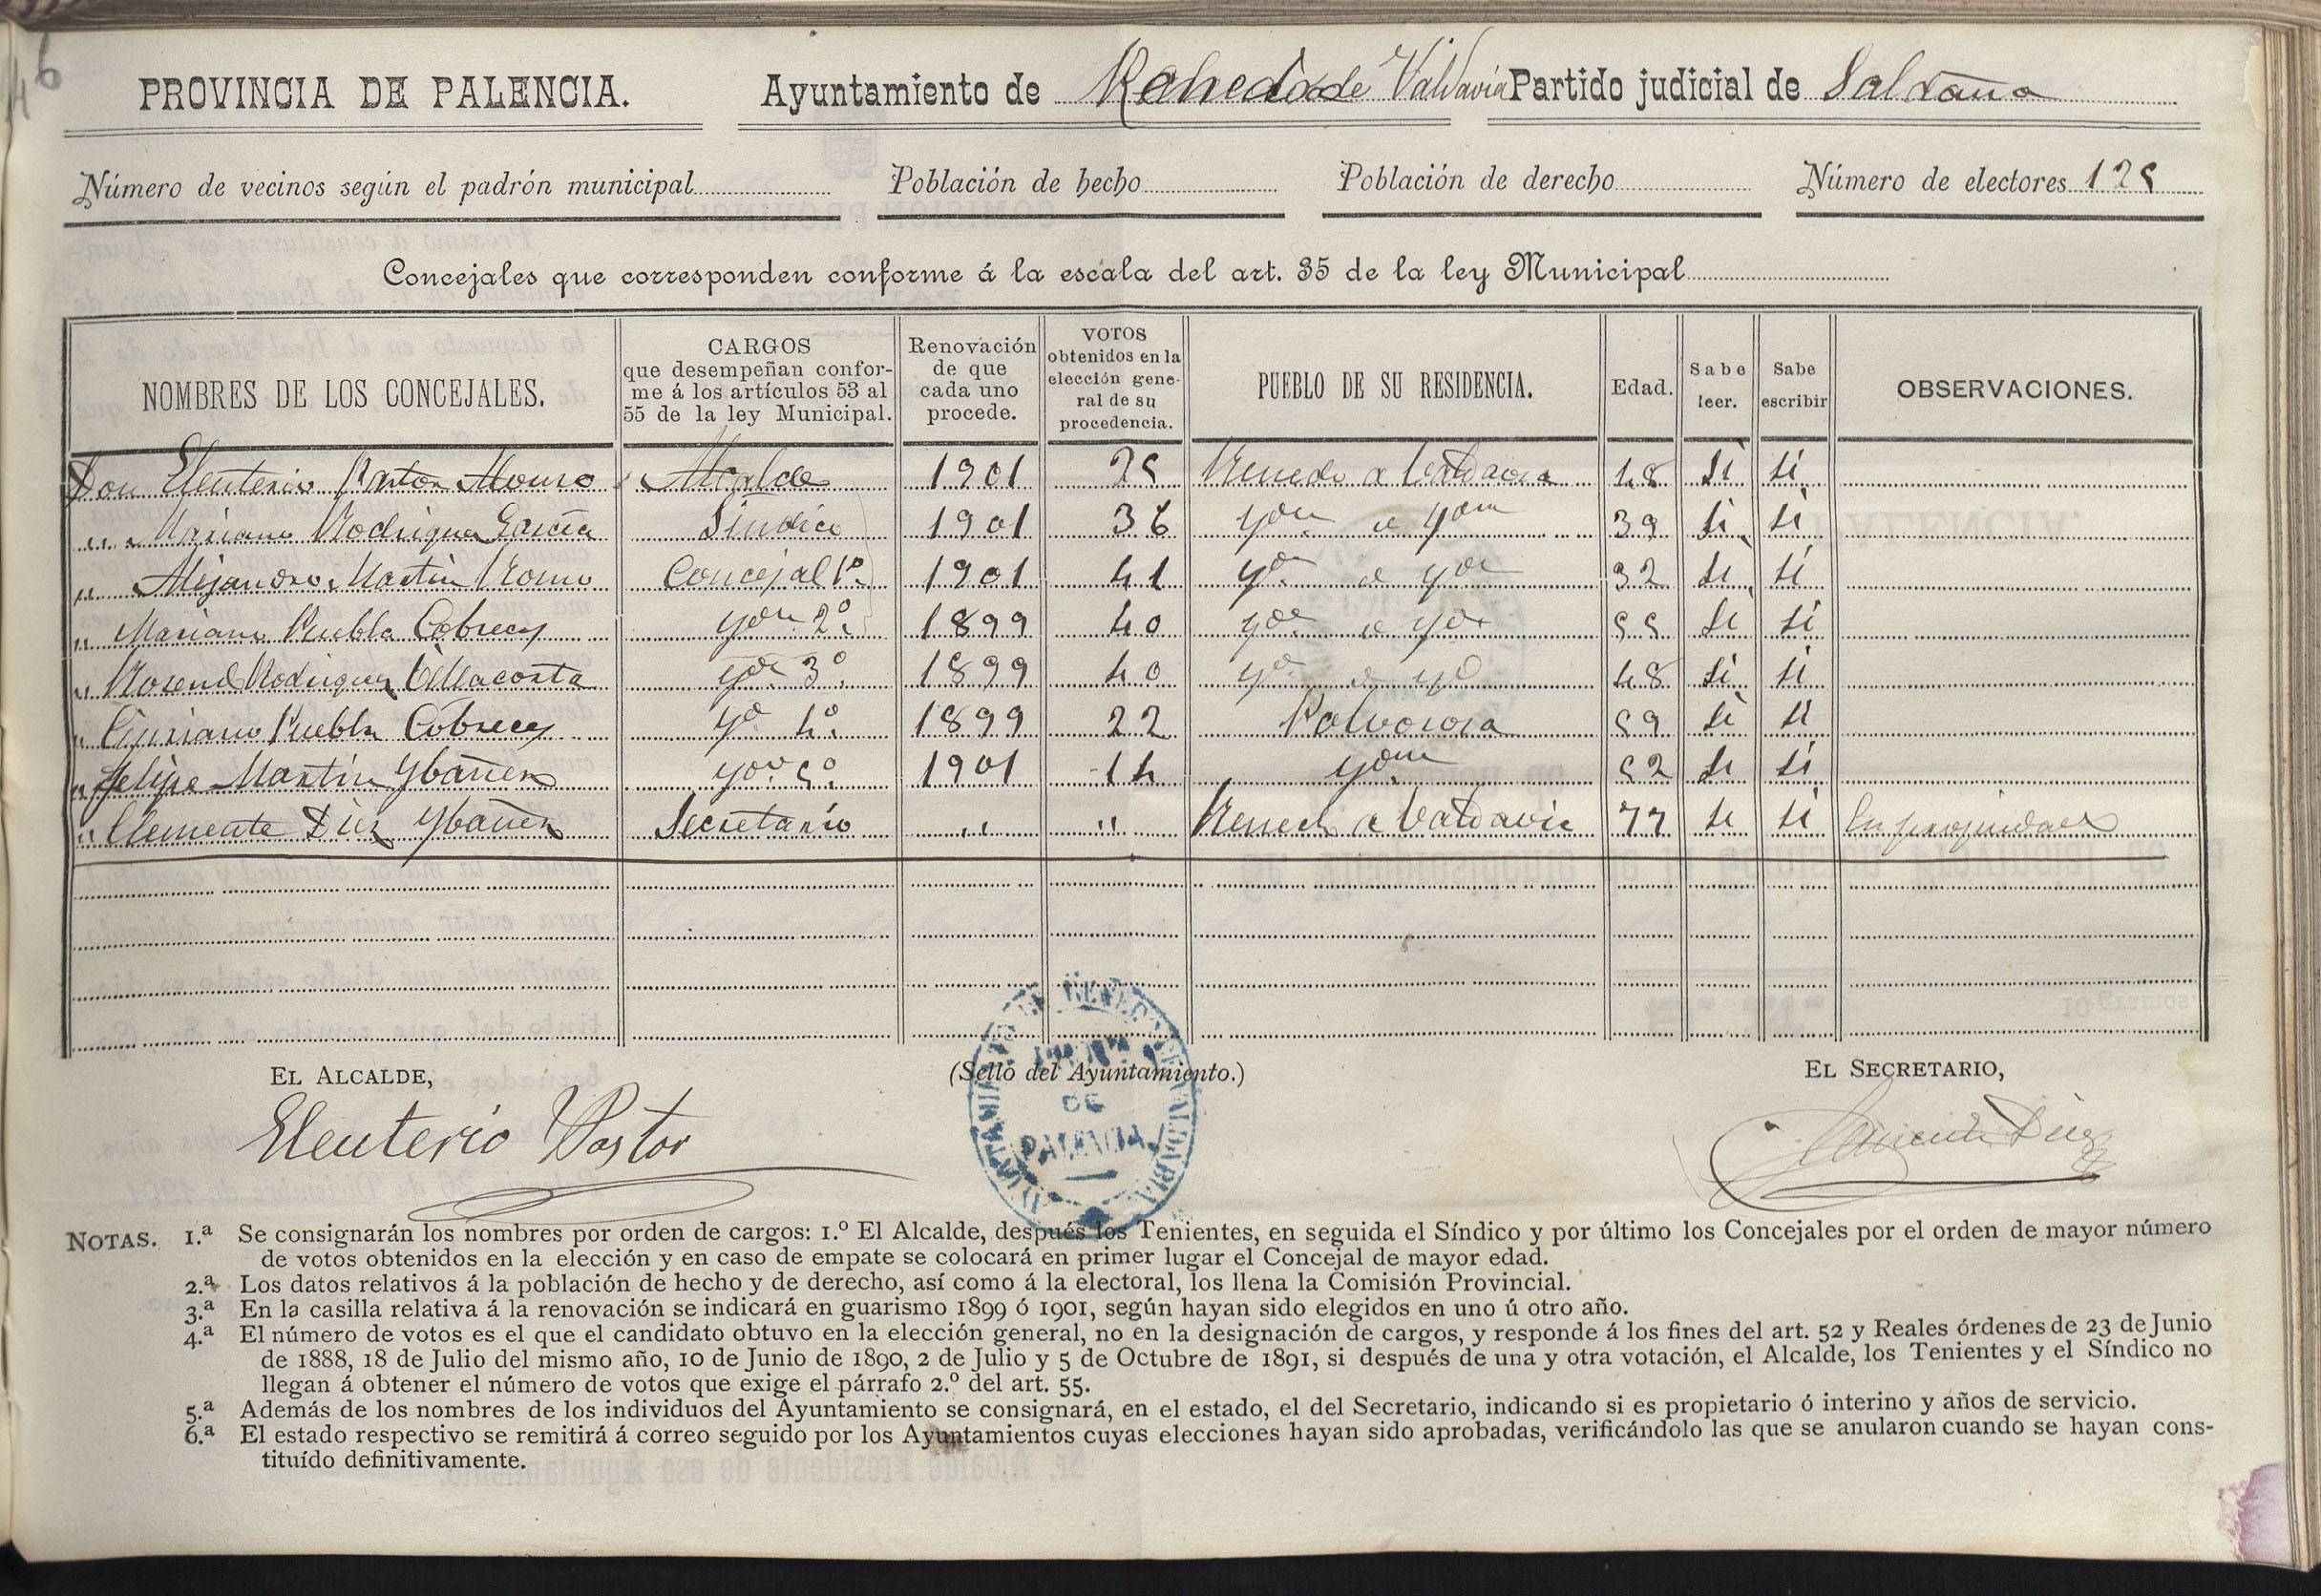 46
PROVINCIA DE PALENCIA. Ayuntamiento de Renedo de Valdavia Partido judicial de Saldaña
Número de vecinos según el padrón municipal Población de hecho Población de derecho Número de electores 125
Concejales que corresponden conforme á la escala del art. 35 de la ley Municipal
NOMBRES DE LOS CONCEJALES. CARGOS que desempeñan conforme á los artículos 53 al 55 de la ley Municipal. Renovación de que cada uno procede. VOTOS obtenidos en la elección general de su procedencia. PUEBLO DE SU RESIDENCIA. Edad. Sabe leer. Sabe escribir OBSERVACIONES.
Don Eleuterio Pastor Alonso Alcalde 1901 25 Renedo de Valdavia 48 si si
" Mariano Rodriguez Garcia Sindico 1901 36 Ydem de Ydem 39 si si
" Alejandro Martin Romo Concejal 1º 1901 41 Ydm de Ydem 32 si si
" Mariano Puebla Cobreces Ydem 2º 1899 40 Ydm de Ydm 55 si si
" Rosendo Rodriguez Villacorta Ydm 3º 1899 40 Yd de Yd 48 si si
" Cipriano Puebla Cobreces Yd 4º 1899 22 Polvorosa 59 si si
" Felipe Martin Ybañez Ydm 5º 1901 14 Ydem 52 si si
" Clemente Diez Ybañez Secretario " " Renedo de Valdavia 77 si si En propiedad
EL ALCALDE, (Sello del Ayuntamiento.) EL SECRETARIO,
Eleuterio Pastor DE PALENCIA Clemente Diez
NOTAS. 1.ª Se consignarán los nombres por orden de cargos: 1.º El Alcalde, después los Tenientes, en seguida el Síndico y por último los Concejales por el orden de mayor número
de votos obtenidos en la elección y en caso de empate se colocará en primer lugar el Concejal de mayor edad.
2.ª Los datos relativos á la población de hecho y de derecho, así como á la electoral, los llena la Comisión Provincial.
3.ª En la casilla relativa á la renovación se indicará en guarismo 1899 ó 1901, según hayan sido elegidos en uno ú otro año.
4.ª El número de votos es el que el candidato obtuvo en la elección general, no en la designación de cargos, y responde á los fines del art. 52 y Reales órdenes de 23 de Junio
de 1888, 18 de Julio del mismo año, 10 de Junio de 1890, 2 de Julio y 5 de Octubre de 1891, si después de una y otra votación, el Alcalde, los Tenientes y el Síndico no
llegan á obtener el número de votos que exige el párrafo 2.º del art. 55.
5.ª Además de los nombres de los individuos del Ayuntamiento se consignará, en el estado, el del Secretario, indicando si es propietario ó interino y años de servicio.
6.ª El estado respectivo se remitirá á correo seguido por los Ayuntamientos cuyas elecciones hayan sido aprobadas, verificándolo las que se anularon cuando se hayan cons-
tituído definitivamente.